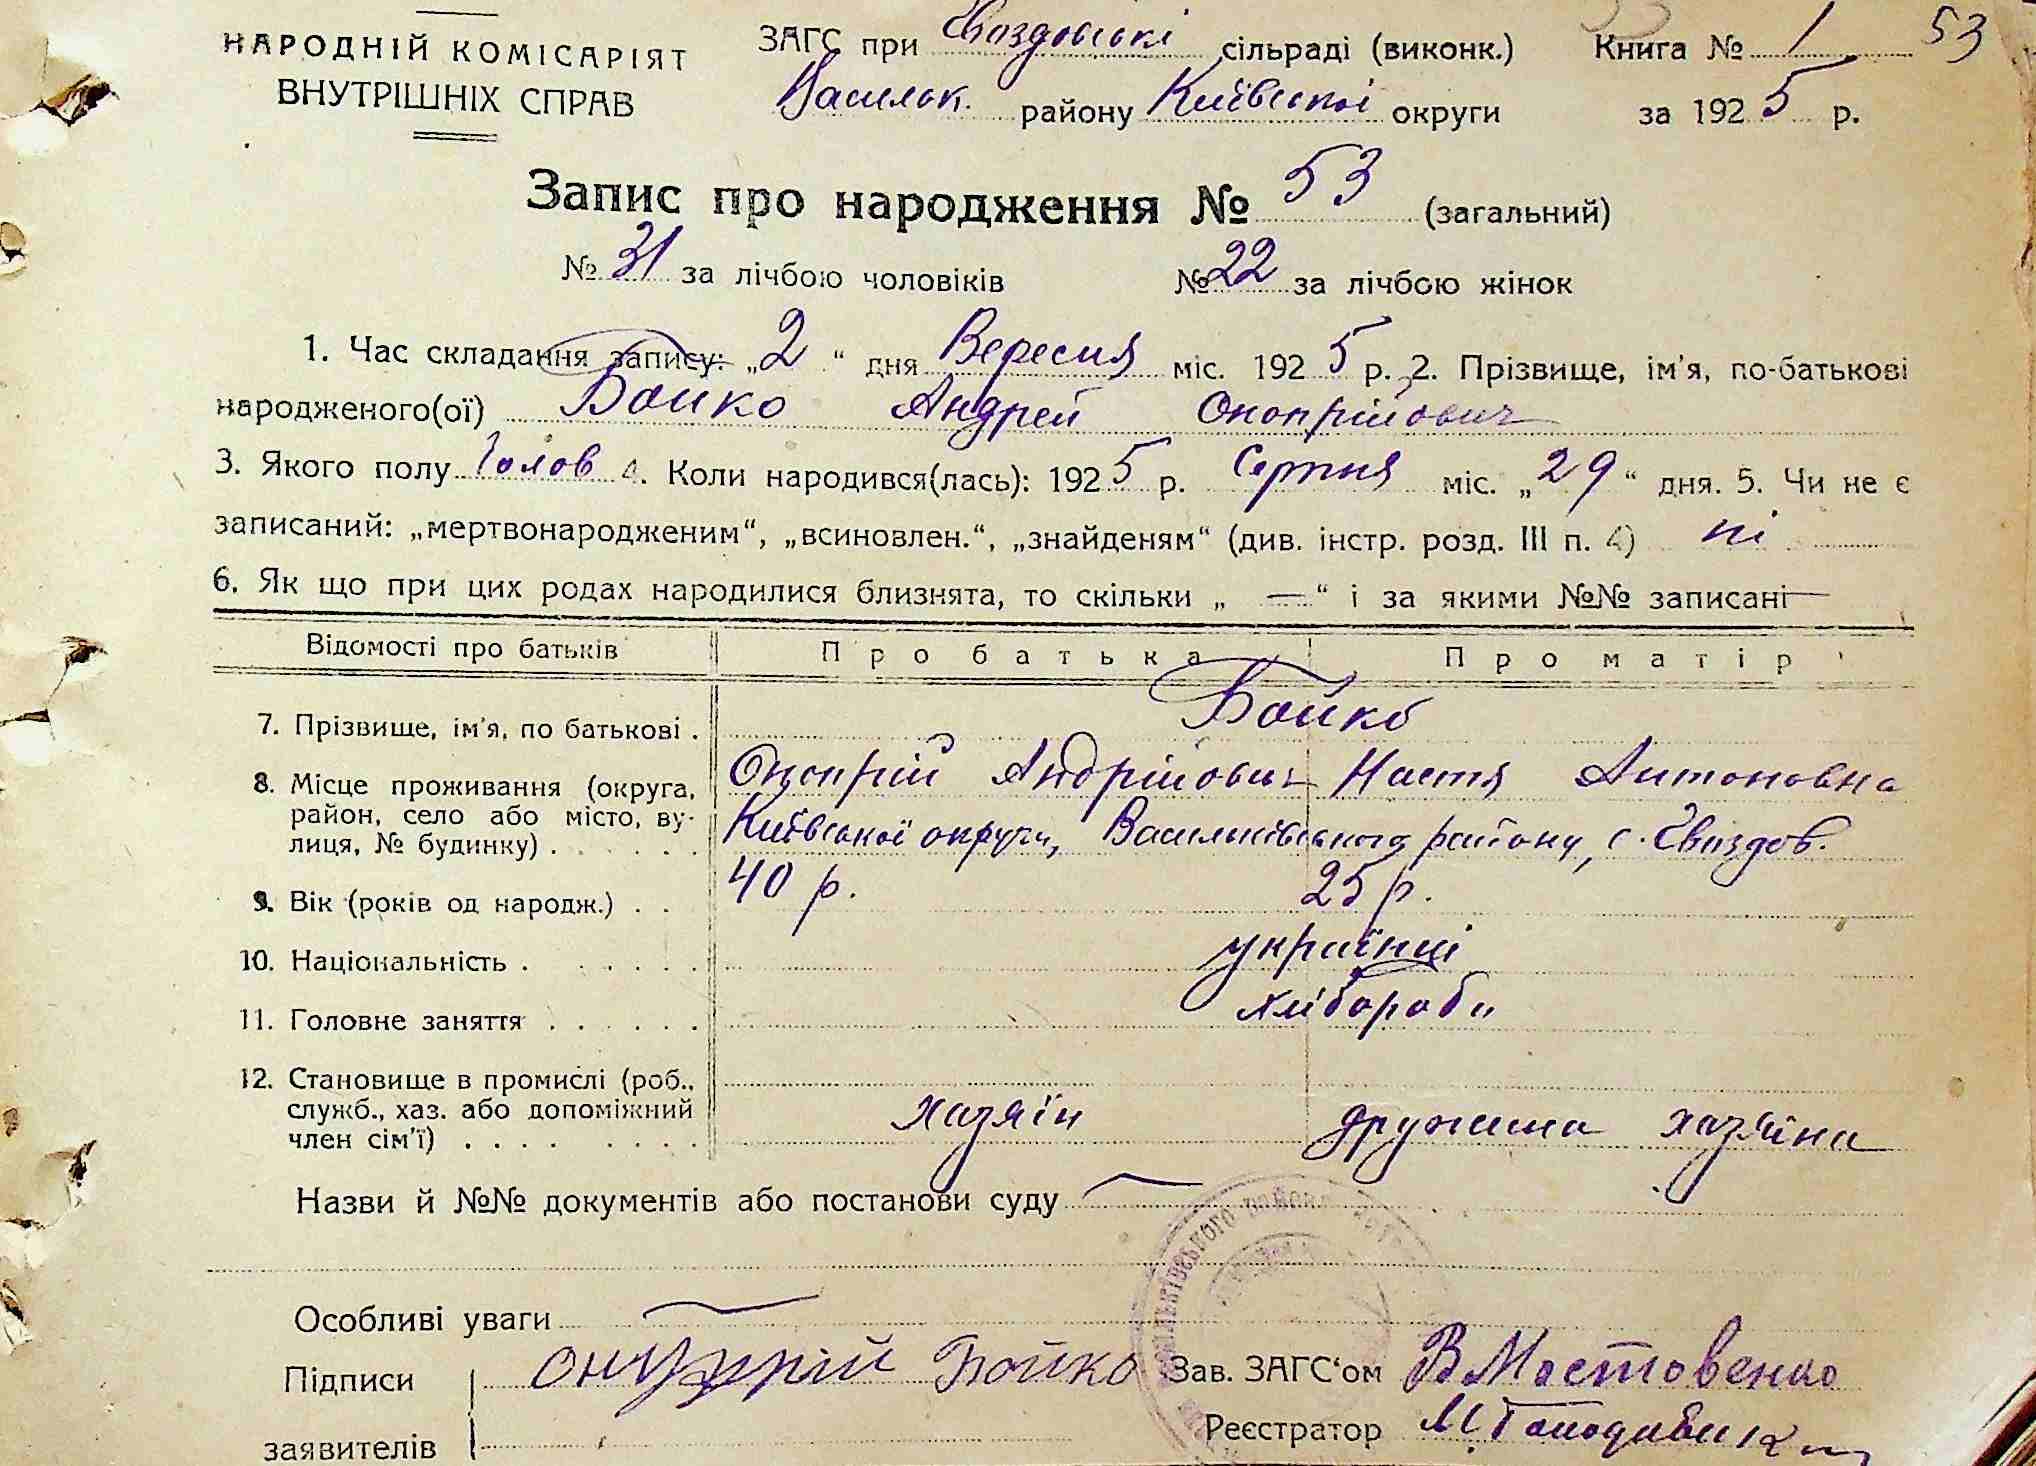 НАРОДНІЙ КОМІСАРІЯТ
ВНУТРІШНІХ СПРАВ
ЗАГС при Гвоздовські сільраді (виконк.)
Васильк. району Київської округи
Книга № 1 53
за 1925 р.
Запис про народження № 53 (загальний)
№ 31 за лічбою чоловіків № 22 за лічбою жінок
1. Час складання запису: „2“ дня Вересня міс. 1925 р. 2. Прізвище, ім'я, по-батькові
народженого(ої) Бойко Андрей Оноприйович
3. Якого полу Чолов 4. Коли народився(лась): 1925 р. Серпня міс. „29“ дня. 5. Чи не є
записаний: „мертвонародженим“, „всиновлен.“, „знайденям“ (див. інстр. розд. III п. 4) ні
6. Як що при цих родах народилися близнята, то скільки „ — “ і за якими №№ записані —
Відомості про батьків Про батька Про матір
7. Прізвище, ім'я, по батькові . Бойко
Оноприй Андрійович Настя Антоновна
8. Місце проживання (округа, район, село або місто, ву-
лиця, № будинку) . Київської округи, Васильківського району, с. Гвоздов.
9. Вік (років од народж.) . . 40 р. 25 р.
10. Національність . українці
11. Головне заняття . хлібороби
12. Становище в промислі (роб.,
служб., хаз. або допоміжний
член сім'ї) . хазяїн дружина хазяїна
Назви й №№ документів або постанови суду —
Особливі уваги —
Підписи
заявителів
онуприй Бойко
Зав. ЗАГС'ом В Мостовенко
Реєстратор М.